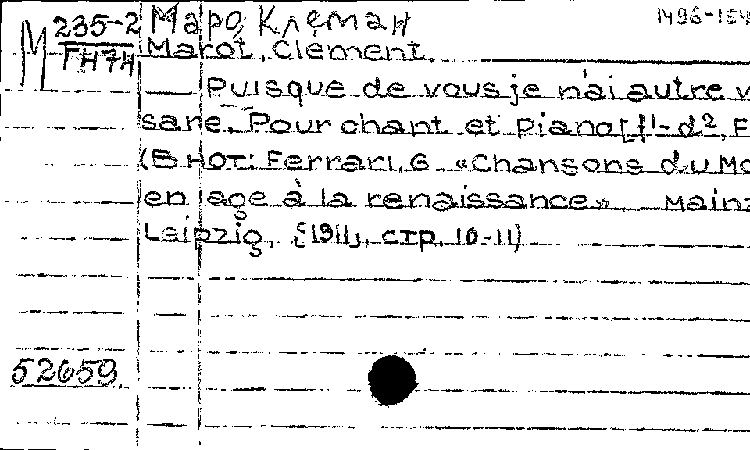 М 235-2 Маро, Клеман 1496-154
ГН74 Marot, Clement.
— Puisque de vous je n'ai autre v
sare. Pour chant et piano [f¹-d², F
(В нот: Ferrari, G «Chansons du Mo
en age à la renaissance». Mainz
Leipzig, [1911], стр. 10-11)
52659